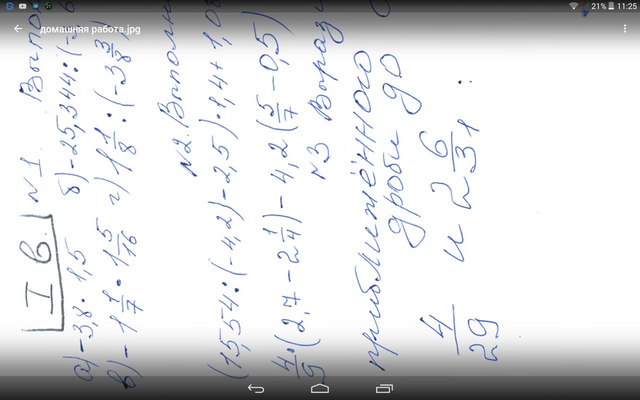 21% 11:25
домашняя работа.jpg
I в. №1. Выпо
а) -3,8 · 1,5 б) -25,344 : (-
в) -1 1/7 · 1 5/16 г) 1 1/8 : (-3 3/8)
№2. Выполни
(15,54 : (-4,2) - 2,5) · 1,4 + 1,08
4/9 · (2,7 - 2 1/4) - 4,2 (5/7 - 0,5)
№3 Вырази
приближённого
дроби до
4/29 и 2 6/31